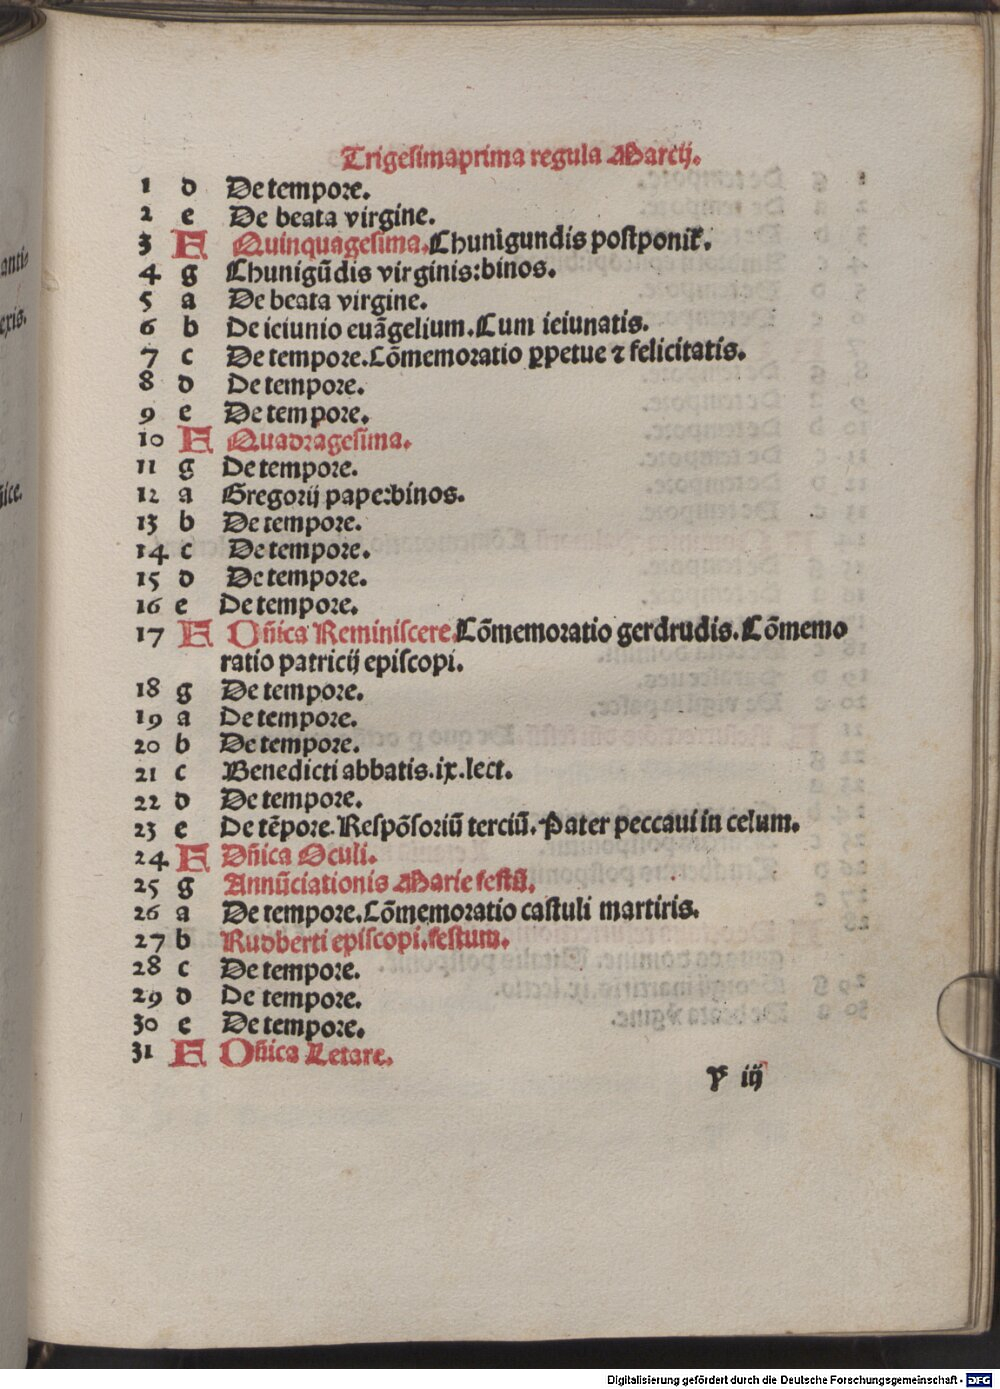 Trigesimaprima regula Marcij.
1 d De tempore.
2 e De beata virgine.
3 F Quinquagesima. Chunigundis postponit̃.
4 g Chunigũdis virginis: binos.
5 a De beata virgine.
6 b De ieiunio euãgelium. Cum ieiunatis.
7 c De tempore. Cõmemoratio ꝑpetue ⁊ felicitatis.
8 d De tempore.
9 e De tempore.
10 F Quadragesima.
11 g De tempore.
12 a Gregorij pape: binos.
13 b De tempore.
14 c De tempore.
15 d De tempore.
16 e De tempore.
17 F Dñica Reminiscere. Cõmemoratio gerdrudis. Cõmemo
ratio patricij episcopi.
18 g De tempore.
19 a De tempore.
20 b De tempore.
21 c Benedicti abbatis. ix. lect.
22 d De tempore.
23 e De tẽpore. Respõsoriũ terciũ. Pater peccaui in celum.
24 F Dñica Oculi.
25 g Annũciationis Marie festũ.
26 a De tempore. Cõmemoratio castuli martiris.
27 b Rudberti episcopi. festum.
28 c De tempore.
29 d De tempore.
30 e De tempore.
31 F Dñica Letare.
iij
antis
exis.
ñice.
Digitalisierung gefördert durch die Deutsche Forschungsgemeinschaft - DFG